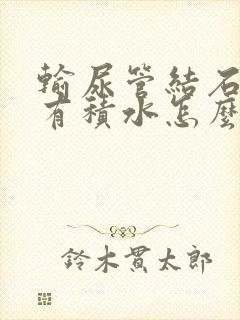 輸尿管結石
有積水怎麼
鈴木貫太郎